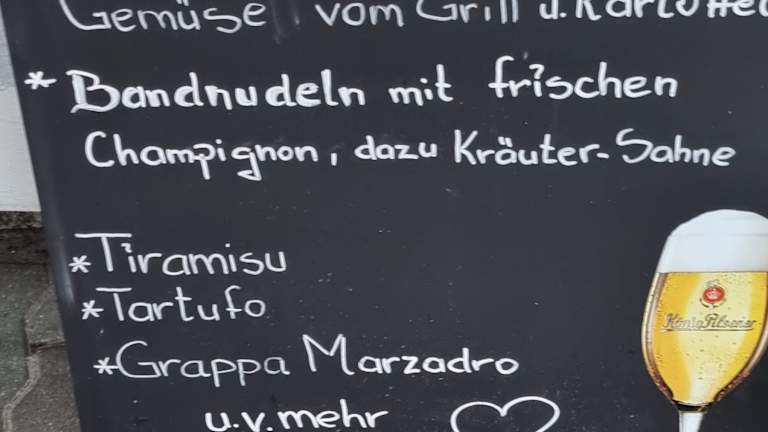 Gemüse vom Grill u. Kartoffel
* Bandnudeln mit frischen
Champignon, dazu Kräuter-Sahne
*Tiramisu
*Tartufo
*Grappa Marzadro
u.v.mehr
König Pilsener